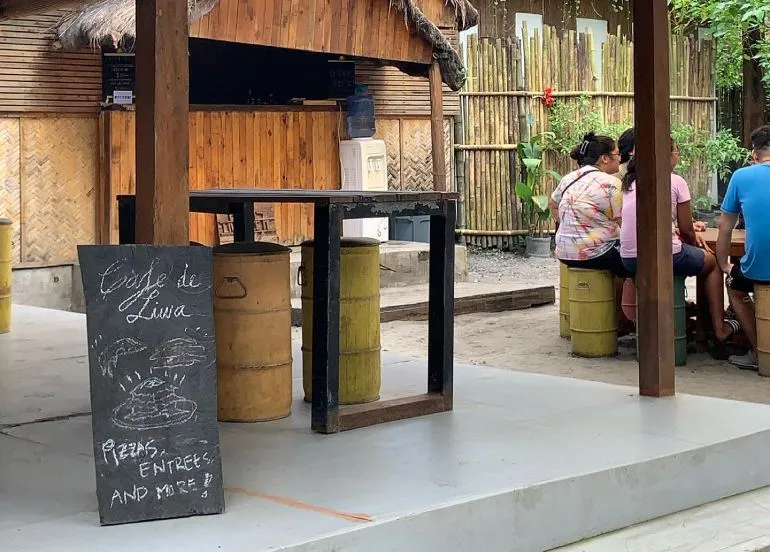 Cafe de
Luna
PIZZAS,
ENTREES
AND MORE!